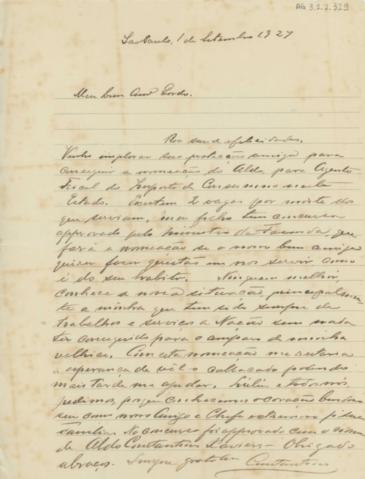 AG 3.2.2.329
São Paulo, 1 de Setembro 1927
Meu bom Amº Gordo.
Boa saude e felicidades.
Venho implorar sua proteção amiga para
conseguir a nomeação do Aldo para Agente
Fiscal do Imposto de Consumo neste
Estado. Existem 2 vagas por morte dos
que serviam, meu filho tem concurso
approvado pelo Ministro da Fazenda, que
fará a nomeação se o nosso bom amigo
quizer fazer questão em nos servir como
é do seu habito. Ninguem melhor
conhece a nossa situação principalmen-
te a minha que tem sido sempre de
trabalhos e serviços a Nação sem nada
ter conseguido para o amparo de minha
velhice. Com esta nomeação me restaria
a esperança de vel-o collocado podendo
mais tarde me ajudar.
pedimos porque conhecemos o coração bondoso
seu como nosso Amigo e Chefe
familia. No concurso foi approvado com o nome
de Aldo Constantino Xavier - Obrigado
abraços. Sempre grato
Constantino